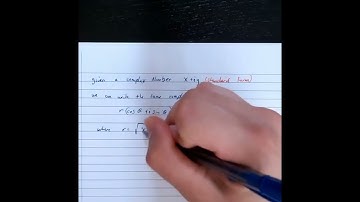 given a complex number x+iy (standard form)
we can write the same compl
r(cos θ + i sin θ
where r = √x